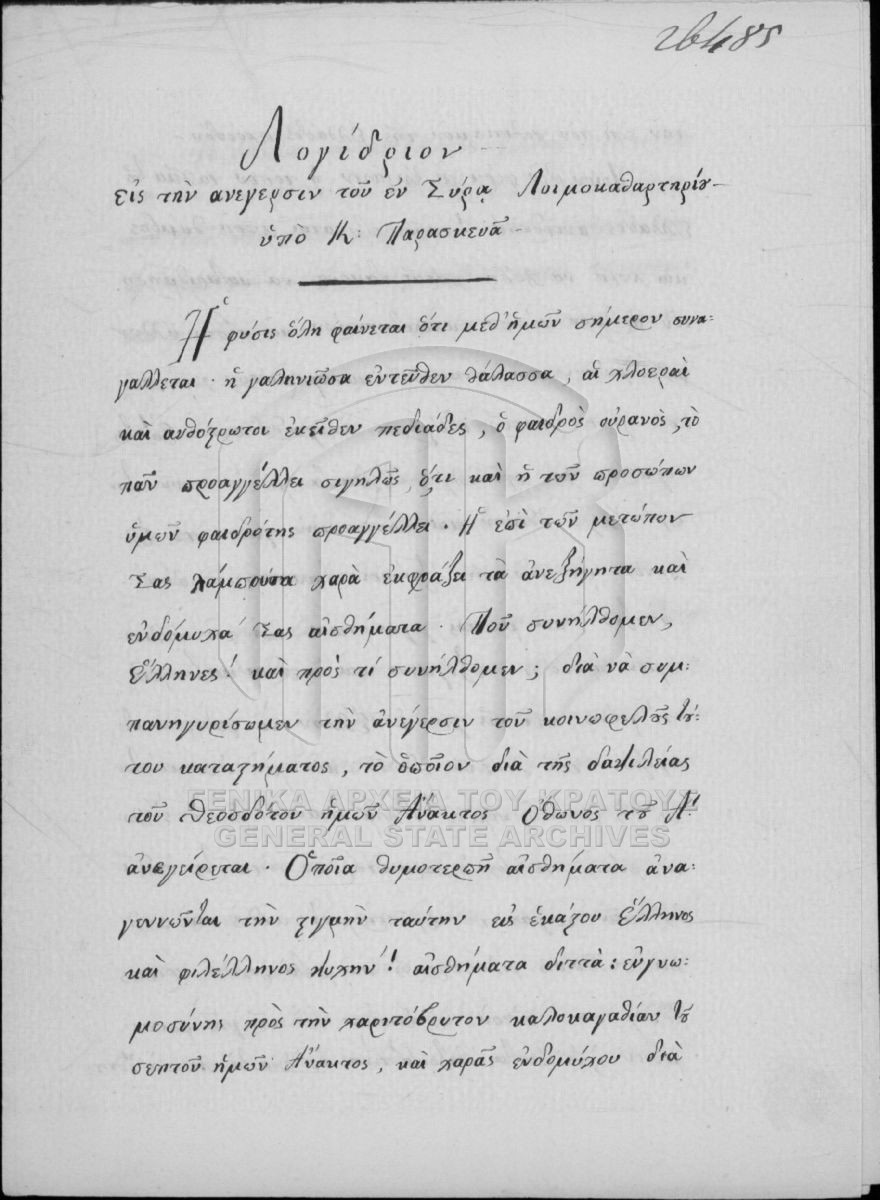 26485
Λογίδριον
εἰς τὴν ανεγερσιν τοῦ εν Σύρᾳ Λοιμοκαθαρτηρίου
ὑπὸ Κ: Παρασκευᾶ
Ἡ φύσις ὅλη φαίνεται ὅτι μεθ' ἡμῶν σήμερον συνα-
γάλλεται · ἡ γαληνιῶσα εντεῦθεν θάλασσα, αἱ χλοεραὶ
καὶ ανθόστρωτοι ἐκεῖθεν πεδιάδες, ὁ φαιδρὸς οὐρανὸς, τὸ
πᾶν προαγγέλλει σιγηλῶς, ὅτι καὶ ἡ τῶν προσώπων
ὑμῶν φαιδρότης προαγγέλλει · Ἡ ἐπὶ τῶν μετώπων
Σας λάμπουσα χαρὰ ἐκφράζει τὰ ἀνεξήγητα καὶ
ενδόμυχά Σας αἰσθήματα · Ποῦ συνήλθομεν,
Ἕλληνες! καὶ πρὸς τί συνήλθομεν; διὰ νὰ συμ-
πανηγυρίσωμεν τὴν ἀνέγερσιν τοῦ κοινωφελοῦς τού-
του καταστήματος, τὸ ὁποῖον διὰ τῆς δαψιλείας
τοῦ θεοσδότου ἡμῶν Ἄνακτος Ὄθωνος τοῦ Α!
ἀνεγείρεται · Ὁποῖα θυμοτερπῆ αἰσθήματα ἀνα-
γεννῶνται τὴν στιγμὴν ταύτην εἰς ἑκάστου Ἕλληνος
καὶ φιλέλληνος ψυχήν! αἰσθήματα διττὰ: εὐγνω-
μοσύνης πρὸς τὴν χαριτόβρυτον καλοκαγαθίαν τοῦ
σεπτοῦ ἡμῶν Ἄνακτος, καὶ χαρᾶς ἐνδομύχου διὰ
ΓΕΝΙΚΑ ΑΡΧΕΙΑ ΤΟΥ ΚΡΑΤΟΥΣ
GENERAL STATE ARCHIVES